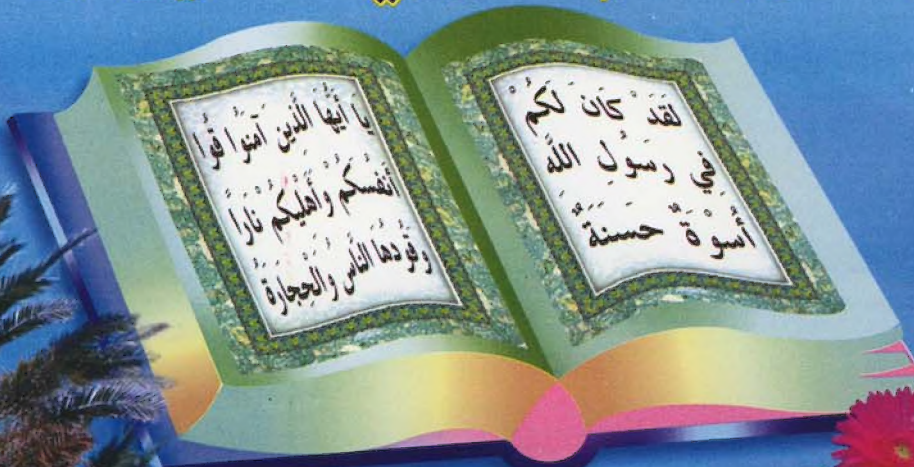 لقَدْ كَانَ لَكُمْ
فِي رَسُولِ اللَّهِ
أُسْوَةٌ حَسَنَةٌ
يَا أَيُّهَا الَّذِينَ آمَنُوا قُوا
أَنْفُسَكُمْ وَأَهْلِيكُمْ نَارًا
وَقُودُهَا النَّاسُ وَالْحِجَارَةُ